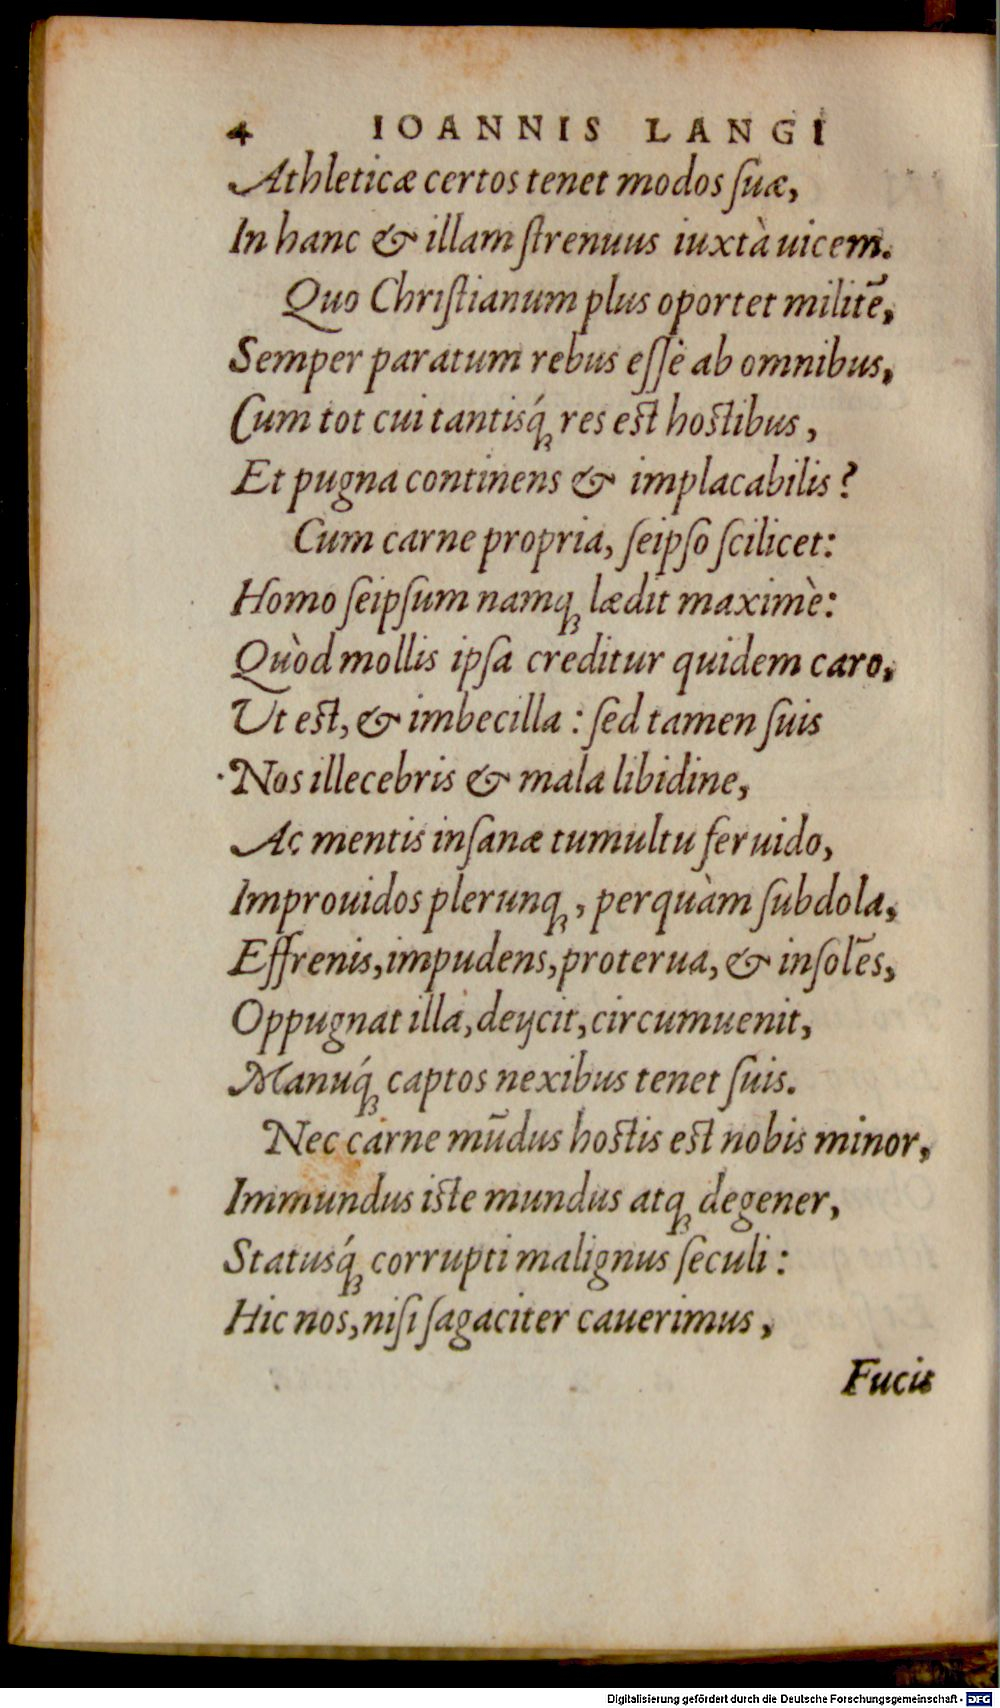 4 IOANNIS LANGI
Athleticæ certos tenet modos ſuæ,
In hanc & illam ſtrenuus iuxtà uicem.
Quo Chriſtianum plus oportet militẽ,
Semper paratum rebus eſſe ab omnibus,
Cum tot cui tantisq́ꝫ res eſt hoſtibus,
Et pugna continens & implacabilis?
Cum carne propria, ſeipſo ſcilicet:
Homo ſeipſum namqꝫ lædit maximè:
Quòd mollis ipſa creditur quidem caro,
Ut eſt, & imbecilla: ſed tamen ſuis
Nos illecebris & mala libidine,
Ac mentis inſanæ tumultu feruido,
Improuidos plerunqꝫ, perquàm ſubdola,
Effrenis, impudens, proterua, & inſolẽs,
Oppugnat illa, deijcit, circumuenit,
Manuq́ꝫ captos nexibus tenet ſuis.
Nec carne mũdus hoſtis eſt nobis minor,
Immundus iſte mundus atqꝫ degener,
Statusq́ꝫ corrupti malignus ſeculi:
Hic nos, niſi ſagaciter cauerimus,
Fucis
Digitalisierung gefördert durch die Deutsche Forschungsgemeinschaft - DFG